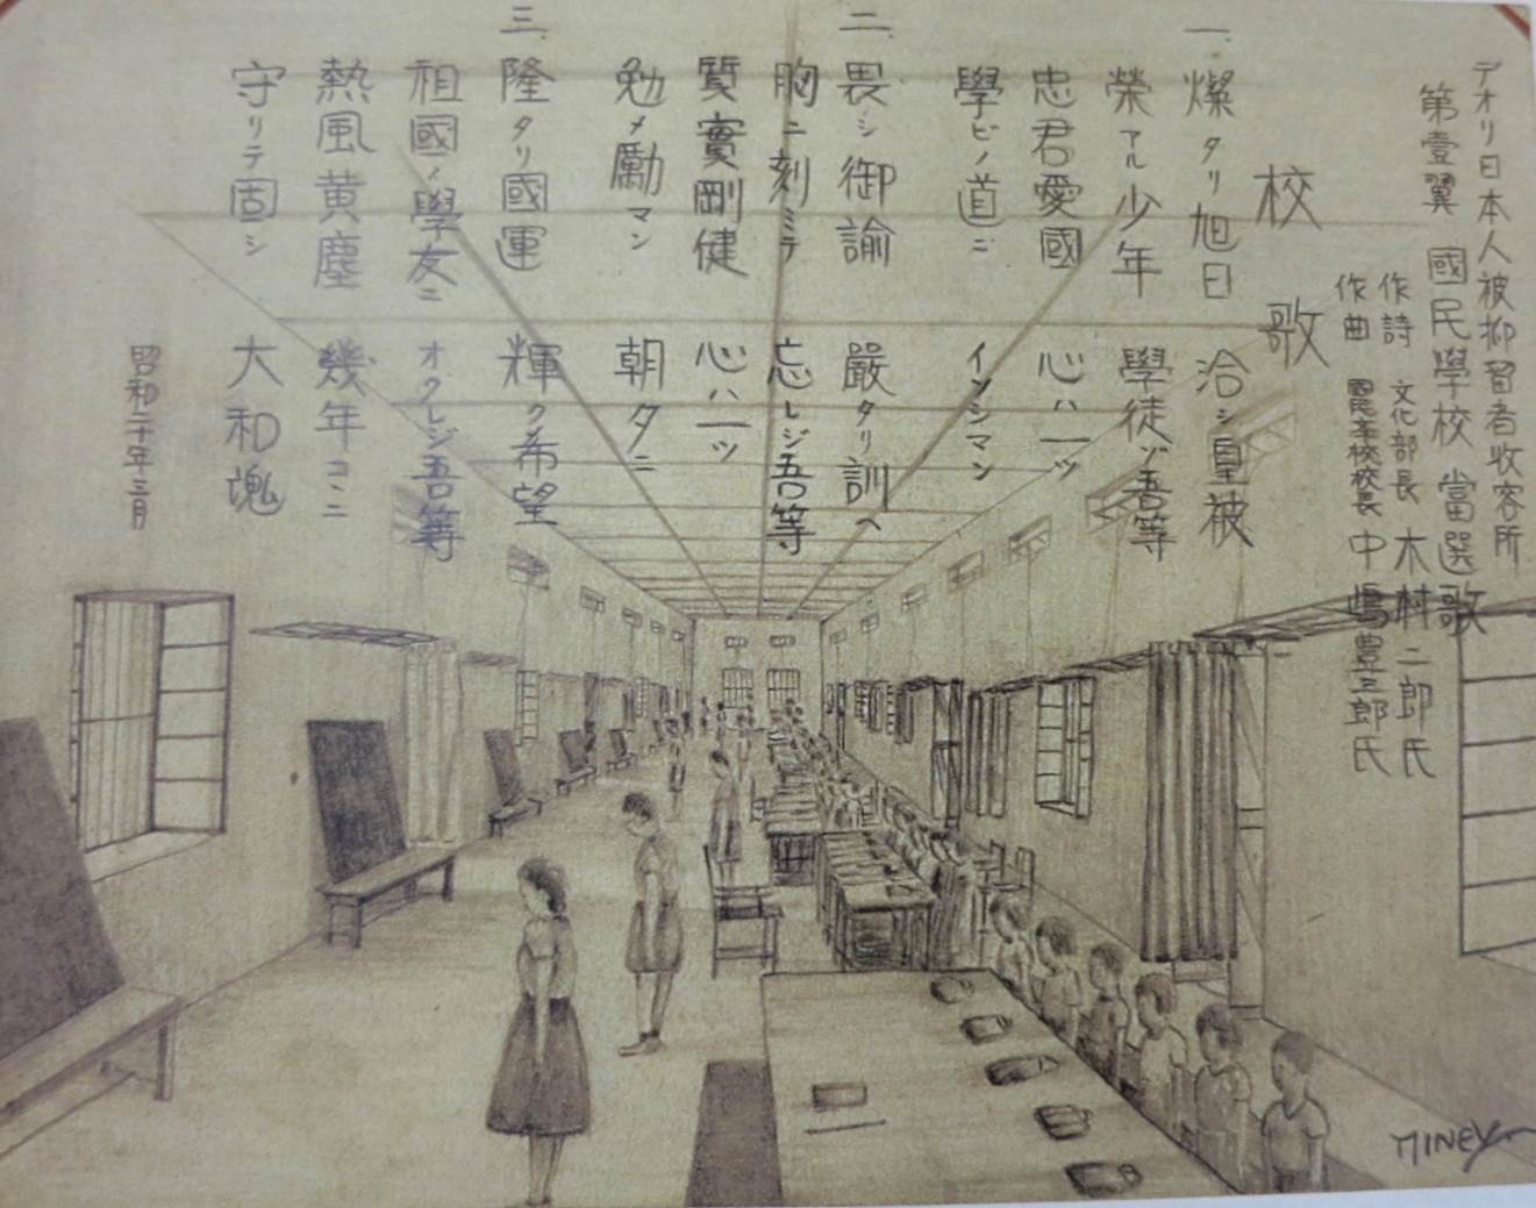 デオリ日本人被抑留者收容所
第壹翼 國民學校 當選歌
作詩 文化部長 木村二郎氏
作曲 國民学校校長 中嶋豊三郎氏
校歌
一、燦タリ旭日 洽シ皇被
榮アル少年 學徒ゾ吾等
忠君愛國 心ハ一ッ
學ビノ道ニ イソシマン
二、畏シ御諭 嚴タリ訓ヘ
胸ニ刻ミテ 忘レジ吾等
質實剛健 心ハ一ッ
勉メ勵マン 朝夕ニ
三、隆タリ國運 輝ク希望
祖國ノ學友ニ オクレジ吾等
熱風黄塵 幾年コヽニ
守リテ固シ 大和魂
昭和二十年三月
MINEY